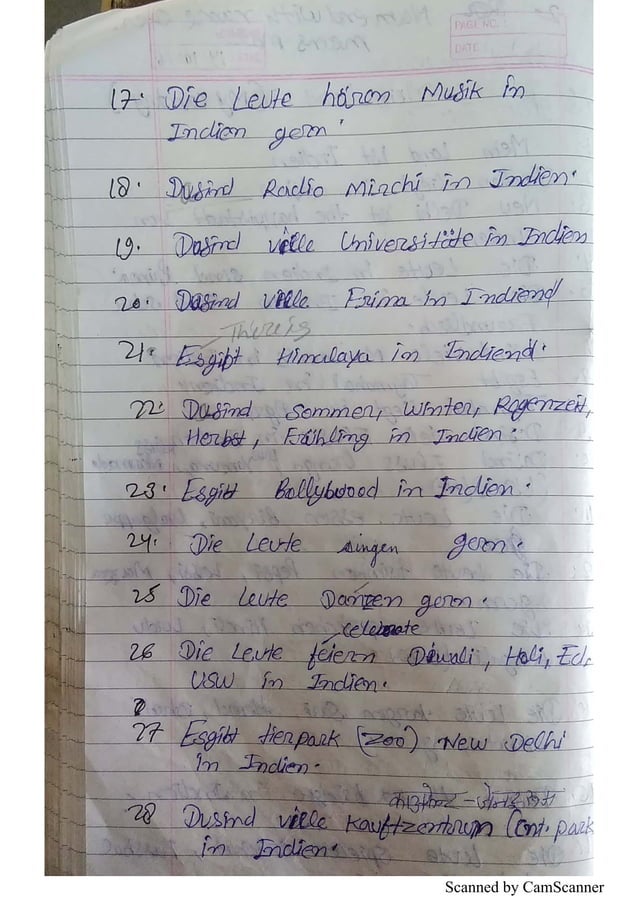 PAGE NO.:
DATE:
17. Die Leute hören Musik in
Indien gern.
18. Dasind Radio Mirchi in Indien.
19. Dasind viele Universitäte in Indien
20. Dasind viele Firma in Indiend
There is
21. Esgibt Himalaya in Indiend.
22. Dasind Sommer, Winter, Regenzeit,
Herbst, Frühling in Indien.
23. Esgibt Bollybwood in Indien.
24. Die Leute singen gern.
25 Die Leute Danzen gern.
celebrate
26 Die Leute feiern Diwali, Holi, Ed,
USW in Indien.
27 Esgibt tierpark (Zoo) New Delhi
in Indien.
28 Dusind viele Kauftzentrum (Ent. park
in Indien.
Scanned by CamScanner